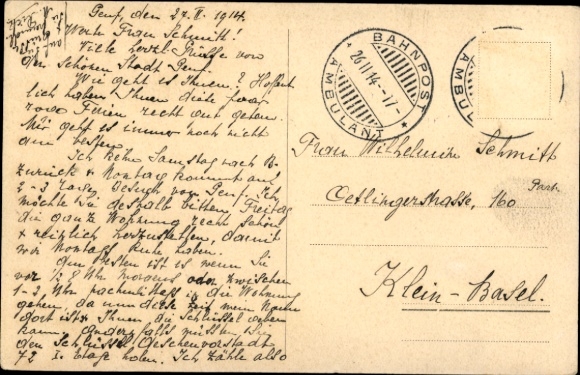 Genf, den 27. II. 1914.
Werte Frau Schmitt!
Viele herzl. Grüsse von
der Schönen Stadt Genf.
Wie geht es Ihnen? Hoffent
lich haben Ihnen diese paar
Ferien recht gut getan.
Mir geht es immer noch nicht
am besten.
Ich kehre Samstag nach B.
zurück & Montag kommt auf
2-3 Tage Besuch von Genf. Ich
möchte Sie deshalb bitten, Freitag
die ganze Wohnung recht schön
& reinlich herzustellen, damit
wir Montags Ruhe haben.
Am Besten ist es wenn Sie
vor ½ 8 Uhr Morgens oder zwischen
1-2 Uhr nachmittags in die Wohnung
gehen, da um diese Zeit mein
dort ist & Ihnen die Schlüssel geben
kann, andernfalls müssten Sie
den Schlüssel Aeschenvorstadt
72 I. Etage holen. Ich zähle also
BAHNPOST
26 II 14
AMBULANT
AMBUL
Frau Wilhelmine Schmitt
Oetlingerstrasse, 160
Part.
Klein-Basel.